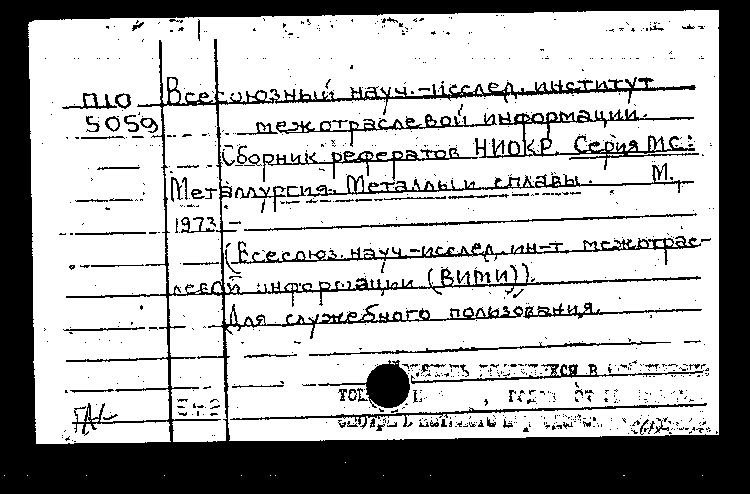 П10 Всесоюзный науч.-исслед. институт
5059 межотраслевой информации.
Сборник рефератов НИОКР. Серия МС:
Металлургия. Металлы и сплавы. М.,
1973 –
(Всесоюз. науч.-исслед. ин-т. межотрас-
левой информации (ВИМИ)).
Для служебного пользования.
в
от